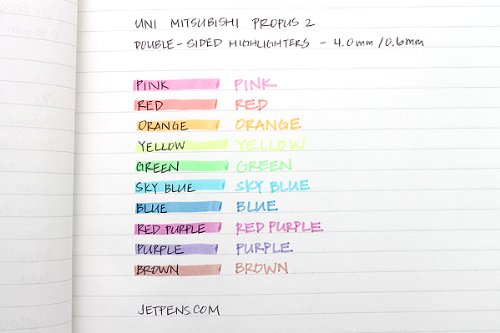 UNI MITSUBISHI PROPUS 2
DOUBLE-SIDED HIGHLIGHTERS - 4.0mm/0.6mm
PINK PINK
RED RED
ORANGE ORANGE
YELLOW YELLOW
GREEN GREEN
SKY BLUE SKY BLUE
BLUE BLUE
RED PURPLE RED PURPLE
PURPLE PURPLE
BROWN BROWN
JETPENS.COM